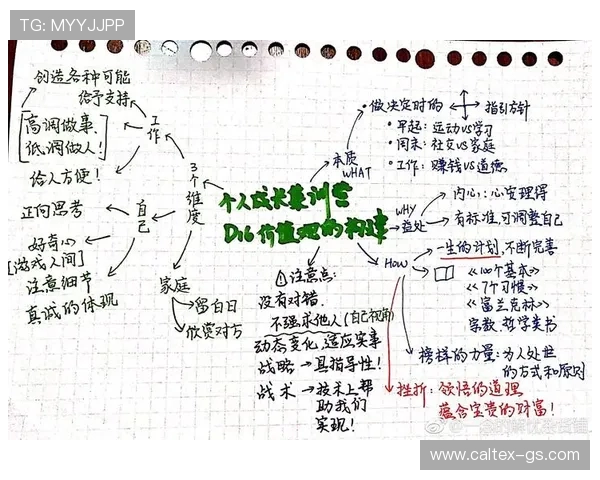 TG: MYYJJPP
创造各种可能
给予支持
高调做事、
低调做人!
给人方便!
工作
正向思考
好奇心
[游戏人间]
注意细节
真诚的体现
自己
3个维度
家庭
留白日
欣赏对方
个人成长集训营
D16价值观的构建
本质
WHAT
做决定时的
指引方针
早起: 运动VS学习
周末: 社交VS家庭
工作: 赚钱VS道德
WHY
益处
内心: 心安理得
有标准,可调整自己
HOW
一生的计划,不断完善
《100个基本》
《7个习惯》
《富兰克林》
宗教、哲学类书
榜样的力量: 为人处世
的方式和原则
挫折: 领悟的道理
蕴含宝贵的财富!
注意点:
没有对错.
不强求他人(自己视角)
动态变化,适应实事
战略→具指导性!
战术→技术上帮
助我们
实现!
www.caltex-gs.com